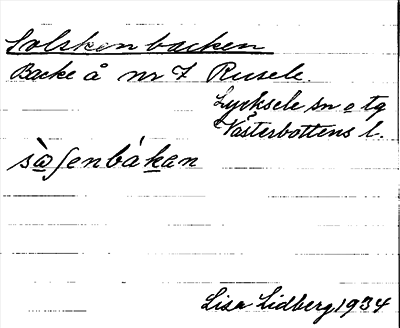 Solskenbacken
Backe å nr 7 Rusele.
Lycksele sn o tg
Västerbottens l.
sὰʃenbákan
Lisa Lidberg 1934